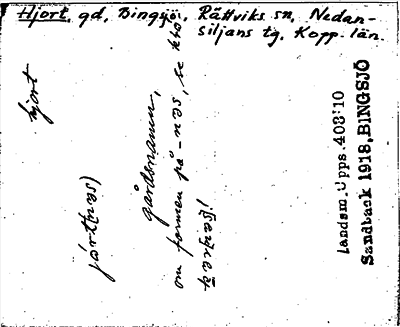 Hjort, gd, Bingsjö, Rättviks sn, Nedan-
siljans tg, Kopp. län.
hjort
gårdsnamn,
om formen på -nəs, se
Landsm. Upps. 403:10
Sandback 1918, BINGSJÖ